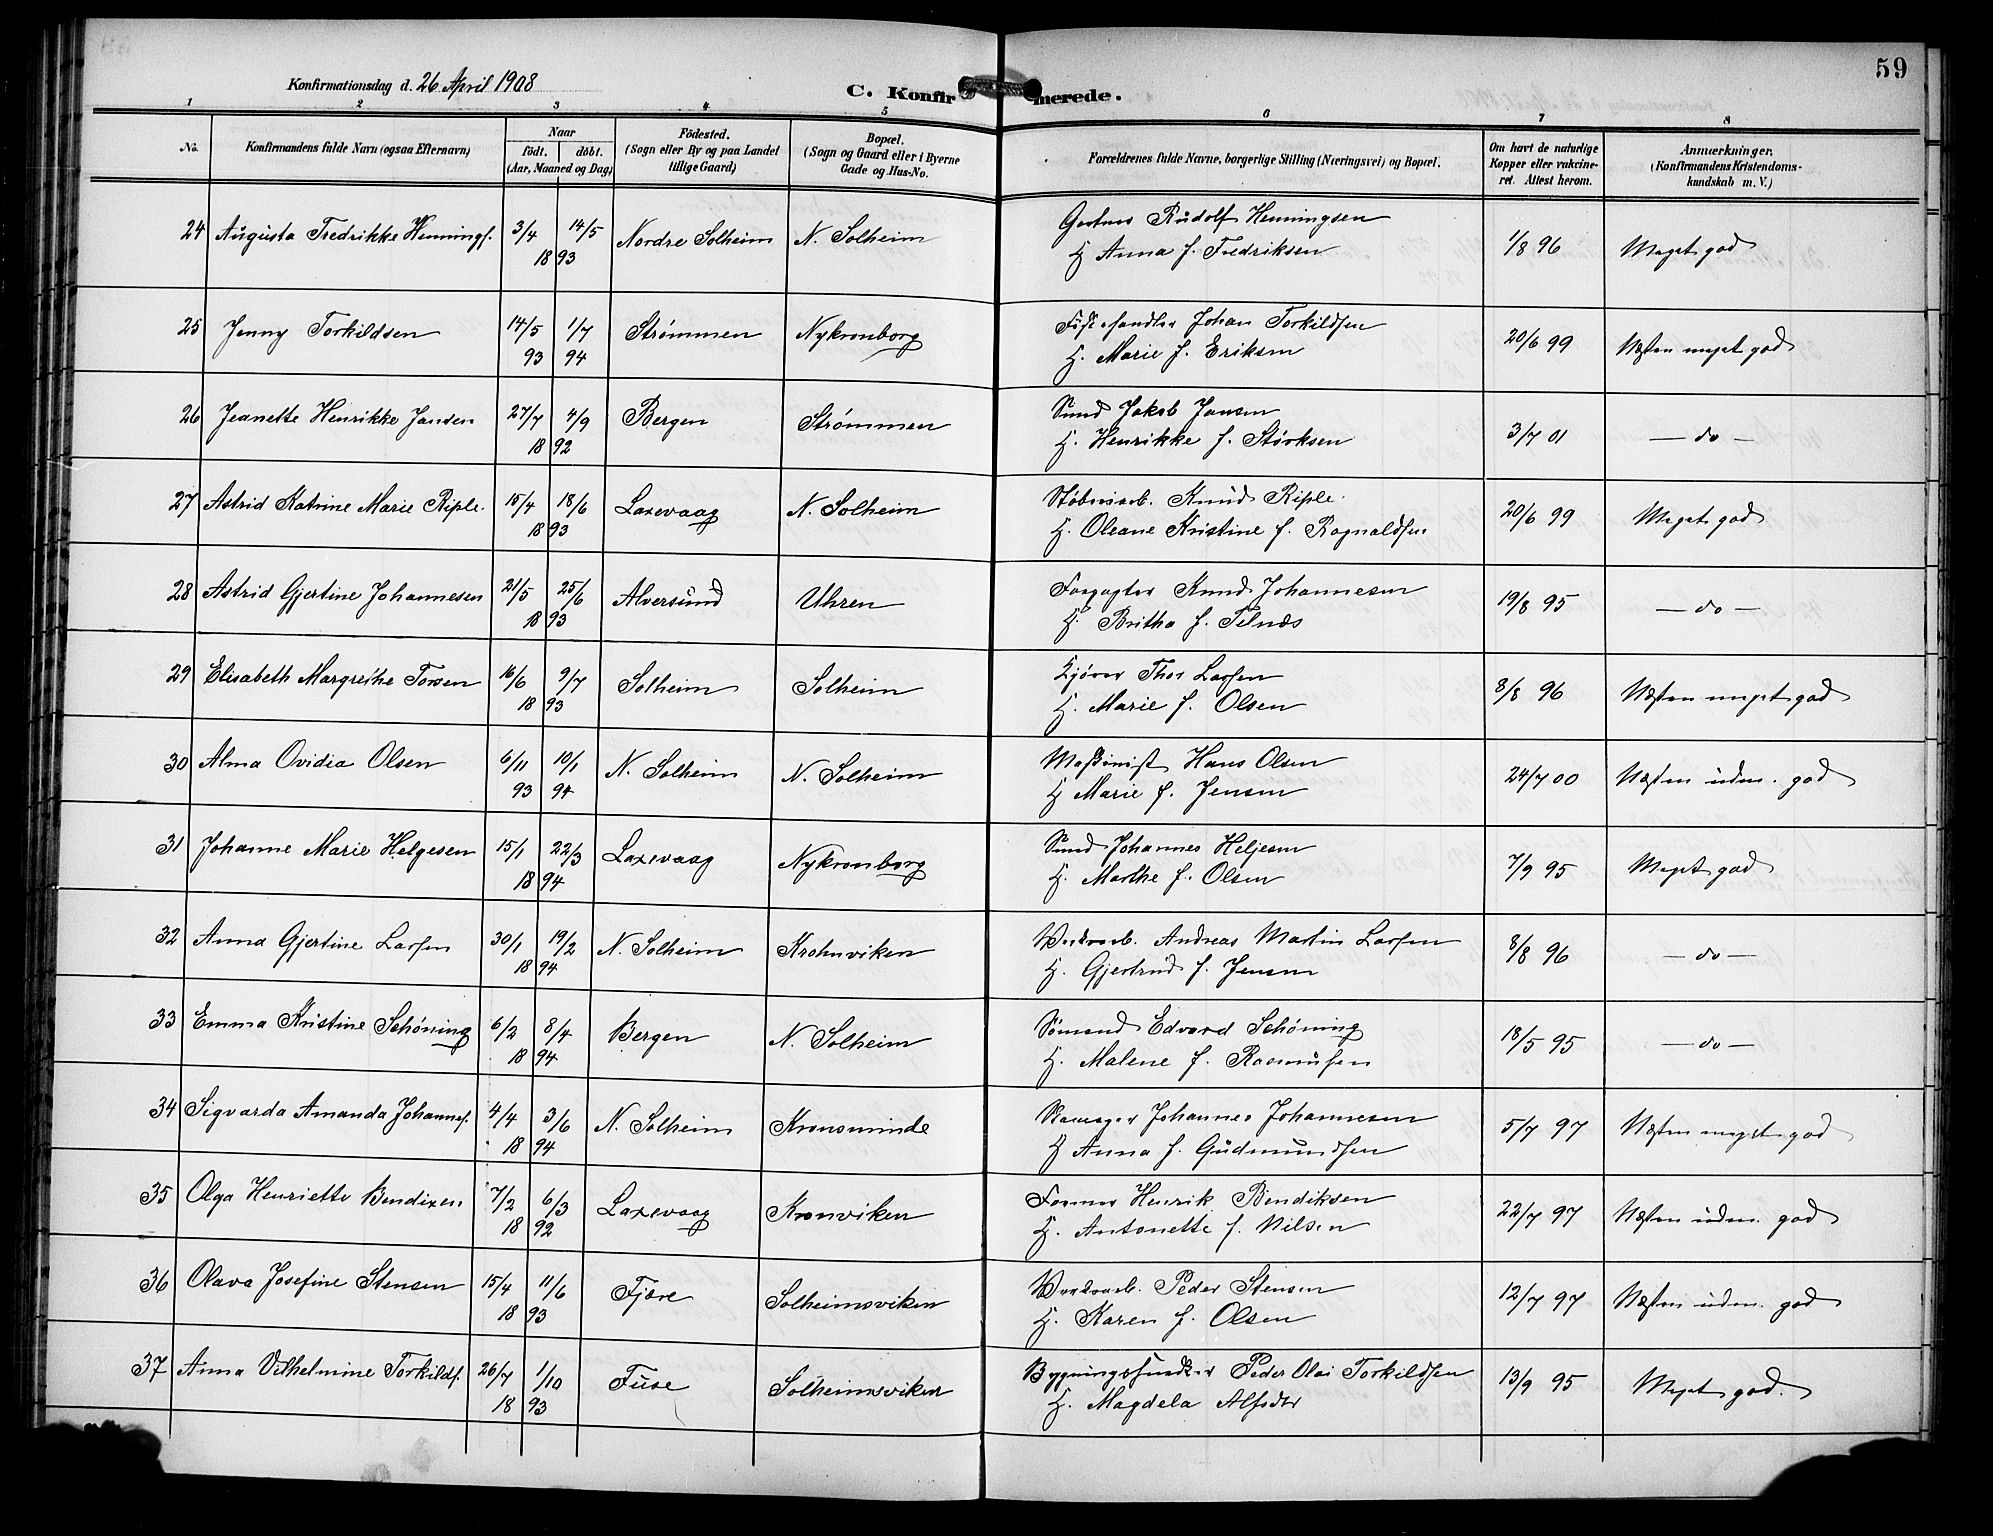 59
Konfirmationsdag d. 26 April 1908
C. Konfirmerede.
1 2 3 4 5 6 7 8
No. Konfirmandens fulde Navn (ogsaa Efternavn) Naar födt. döbt. (Aar, Maaned og Dag) Födested. (Sogn eller By og paa Landet tillige Gaard) Bopæl. (Sogn og Gaard eller i Byerne Gade og Hus-No. Forældrenes fulde Navne, borgerlige Stilling (Næringsvei) og Bopæl. Om havt de naturlige Kopper eller vakcineret. Attest herom. Anmærkninger, (Konfirmandens Kristendomskundskab m. V.)
24 Augusta Fredrikke Hennings. 3/4 14/5 Nordre Solheim N. Solheim Gartner Rudolf Henningsen 1/8 96 Meget god
18 93 H Anna f. Fredriksen
25 Jenny Torkildsen 14/5 1/7 Strømmen Nykronborg Fiskehandler Johan Torkildsen 20/6 99 Næsten meget god
93 94 H. Marie f. Eriksen
26 Jeanette Henrikke Jansen 27/7 4/9 Bergen Strømmen Smed Jakob Jansen 3/7 01 — do —
18 92 H. Henrikke f. Størksen
27 Astrid Katrine Marie Riple. 15/4 18/6 Laxevaag N. Solheim Støberiarb. Knud Riple. 20/6 99 Meget god
18 93 H. Oleane Kristine f. Ragnaldsen
28 Astrid Gjertine Johannesen 21/5 25/6 Alversund Uhren Forpagter Knud Johannesen 19/8 95 — do —
18 93 H. Britha f. Telnæs
29 Elisabeth Margrethe Torsen 16/6 9/7 Solheim Solheim Kjører Thor Larsen 8/8 96 Næsten meget god
18 93 H. Marie f. Olsen
30 Alma Ovidia Olsen 6/11 10/1 N. Solheim N. Solheim Maskinist Hans Olsen 24/7 00 Næsten udm. god
93 94 H Marie f. Jensen
31 Johanne Marie Helgesen 15/1 22/3 Laxevaag Nykronborg Smed Johannes Heljesen 7/9 95 Meget god
18 94 H. Marthe f. Olsen
32 Anna Gjertine Larsen 30/1 19/2 N. Solheim Krohnviken Værksarb. Andreas Martin Larsen 8/8 96 — do —
18 94 H. Gjertrud f. Jensen
33 Emma Kristine Schöning 6/2 8/4 Bergen N. Solheim Sømand Edvard Schöning 18/5 95 — do —
18 94 H. Malene f. Rasmusen
34 Sigvarda Amanda Johannes. 4/4 3/6 N. Solheim Kronsminde Johannes Johannesen 5/7 97 Næsten meget god
18 94 H Anna f. Gudmundsen
35 Olga Henriette Bendixen 7/2 6/3 Laxevaag Kronviken Former Henrik Bendiksen 22/7 97 Næsten udm. god
18 92 H. Antonette f. Nilsen
36 Olava Josefine Stensen 15/4 11/6 Fjære Solheimsviken Værksarb. Peder Stensen 12/7 97 Næsten udm. god
18 93 H. Karen f. Olsen
37 Anna Vilhelmine Torkilds. 26/7 1/10 Fuse Solheimsviken Bygningssnedker Peder Olai Torkildsen 13/9 95 Meget god.
18 93 H. Magdela Alfsdtr